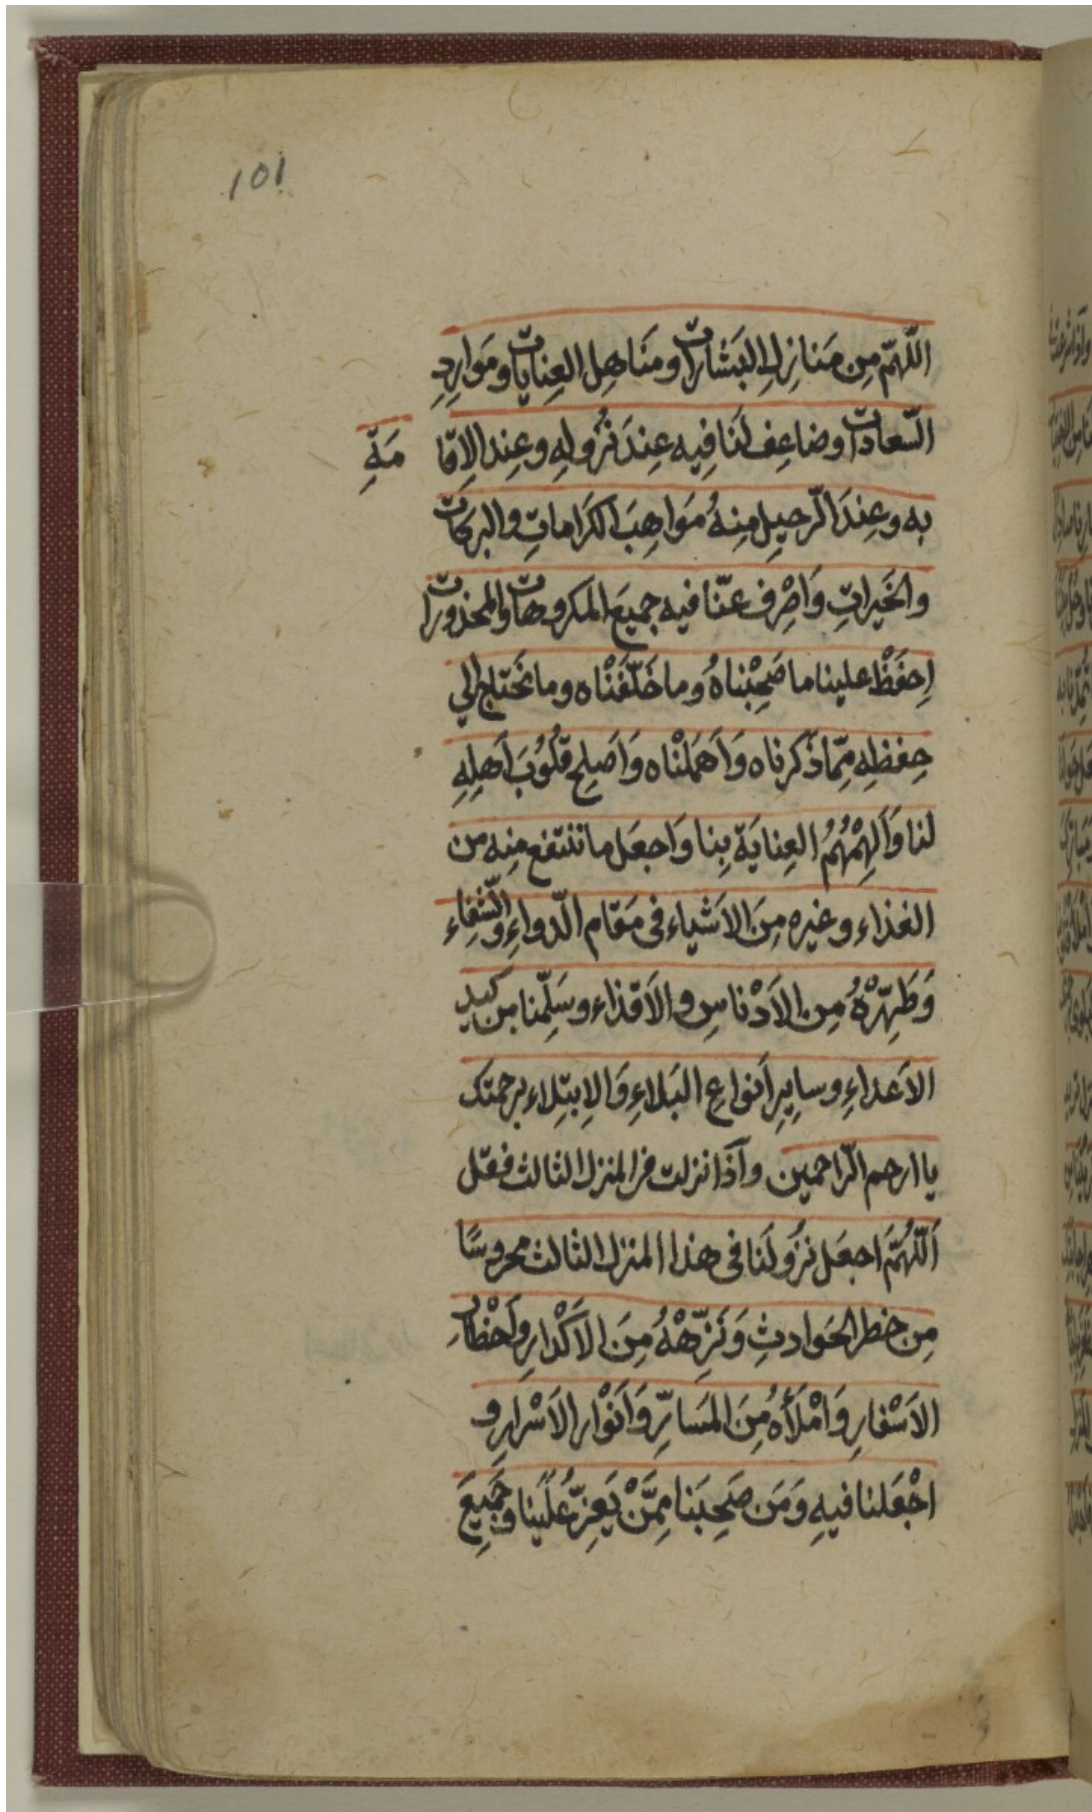 101
اللّهمّ مِن مَنازِلِ البَشاراتِ ومَناهِلِ العِناياتِ ومَوارِدِ
السّعاداتِ وضاعِف لَنا فِيه عِندَ نُزُولِهِ وعِند الاِقامَةِ
به وعِندَ الرّحيلِ مِنهُ مَواهِبَ الكَراماتِ والبركات
والخَيراتِ وَاصْرِف عنّا فيه جميعَ المكروهات والمحذورات
اِحفَظْ علينا ما صَحِبْناهُ وما خَلّفْناه وما نحتاج الي
حِفظِه مِمّا ذَكرناه وَاَهمَلْناه وَاَصلِح قُلُوبَ اَهلِهِ
لنا وَاَلهِمْهُمُ العِنايَةَ بِنا وَاجعَل ما ننتفع مِنه من
الغذاء وغيره مِنَ الاَشياء فى مَقام الدّواءِ والشِّفاء
وَطَهِّرْهُ مِن الاَدْناسِ والاَقذاء وسَلِّمنا من كيد
الاَعداءِ وسايِرِ اَنواعِ البَلاءِ وَالاِبتِلاء برحمتك
يا ارحم الرّاحمين واَذا نزلت فى المنزل الثالث فقل
اَللّهُمَّ اجعَل نُزُولَنا فى هذا المنزل الثالث محروسًا
مِن خطر الحَوادثِ وَنَزِّهْهُ مِنَ الاَكْدارِ وَاَخْطارِ
الاَسْفارِ وَامْلَأْهُ مِنَ المَسارِّ وَاَنْوارِ الاَسْرارِ و
اجْعَلنا فيهِ وَمَن صَحِبَنا مِمَّنْ يَعِزُّ عَلَينا وجَمِيعَ